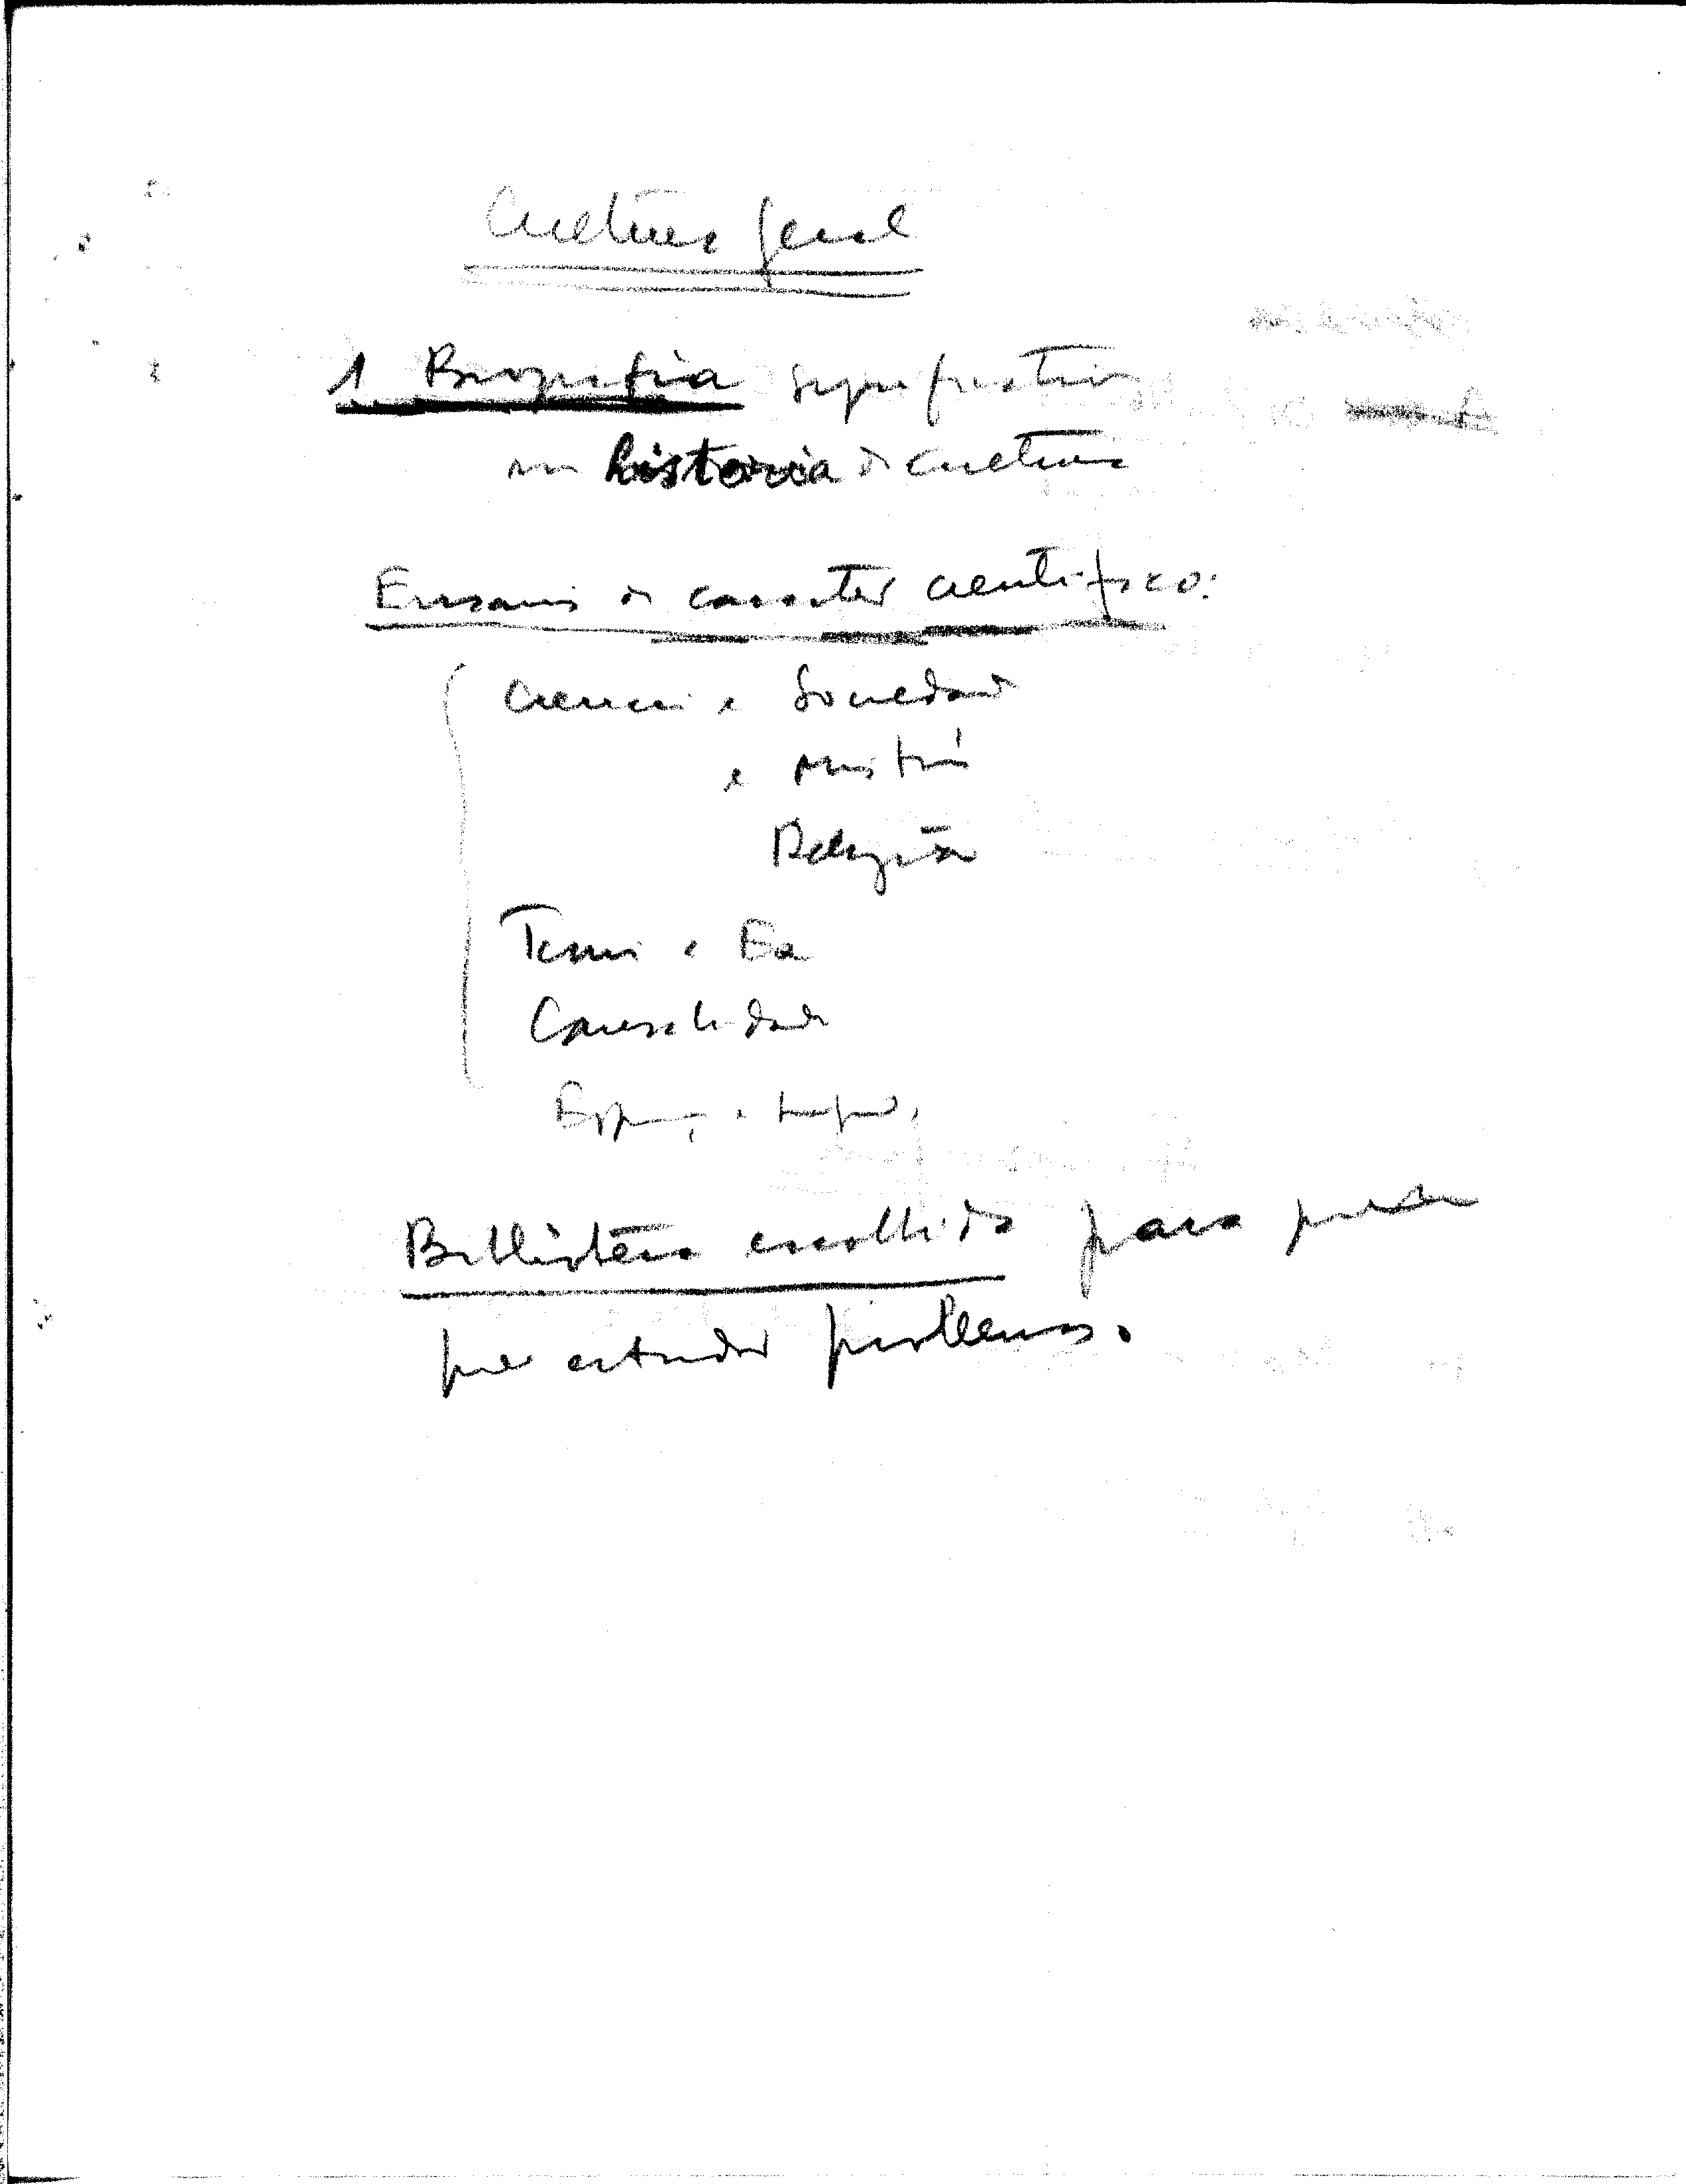 Cultura geral
1 Biografia significativa
na historia da cultura
Ensaios de caracter cientifico:
Ciencia e Sociedade
e
Religião
e
Causalidade
Espaço e tempo.
Biblioteca escolhida para
estudar problemas.